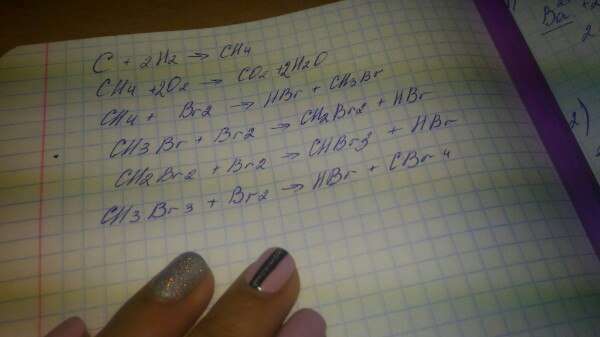 C + 2H2 → CH4
CH4 + 2O2 → CO2 + 2H2O
CH4 + Br2 → HBr + CH3Br
CH3Br + Br2 → CH2Br2 + HBr
CH2Br2 + Br2 → CHBr3 + HBr
CH3Br3 + Br2 → HBr + CBr4
Ba
2)